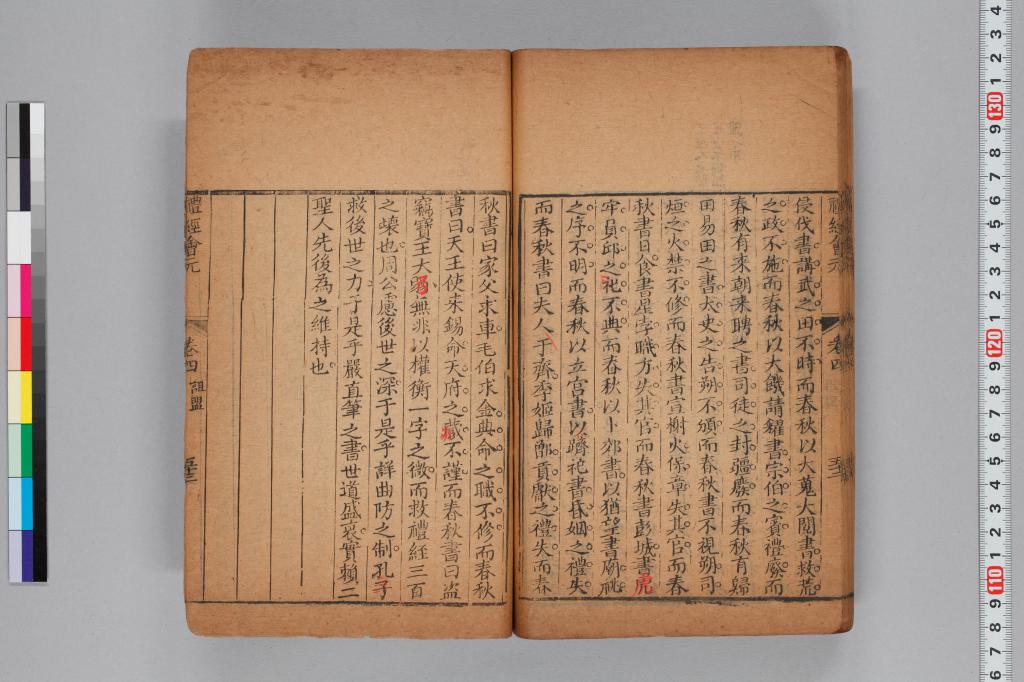 侵伐書講武之田不時而春秋以大蒐大閱書救荒
之政不施而春秋以大饑請糴書宗伯之賓禮廢而
春秋有來朝來聘之書司徒之封疆廢而春秋有歸
田易田之書太史之告朔不頒而春秋書不視朔司
烜之火禁不修而春秋書宣榭火保章失其官而春
秋書日食書星孛職方失其官而春秋書彭城書虎
牢員邱之祀不典而春秋以卜郊書以猶望書廟祧
之序不明而春秋以立宮書以躋祀書昏姻之禮失
而春秋書曰夫人于齊季姬歸鄫貢獻之禮失而春
秋書曰家父求車毛伯求金典命之職不修而春秋
書曰天王使來錫命天府之藏不謹而春秋書曰盜
竊寶玉大弓無非以權衡一字之微而救禮經三百
之壞也周公慮後世之深于是乎詳曲防之制孔子
救後世之力于是乎嚴直筆之書世道盛衰實賴二
聖人先後為之維持也
禮經會元
卷四 詛盟
禮經會元
卷四